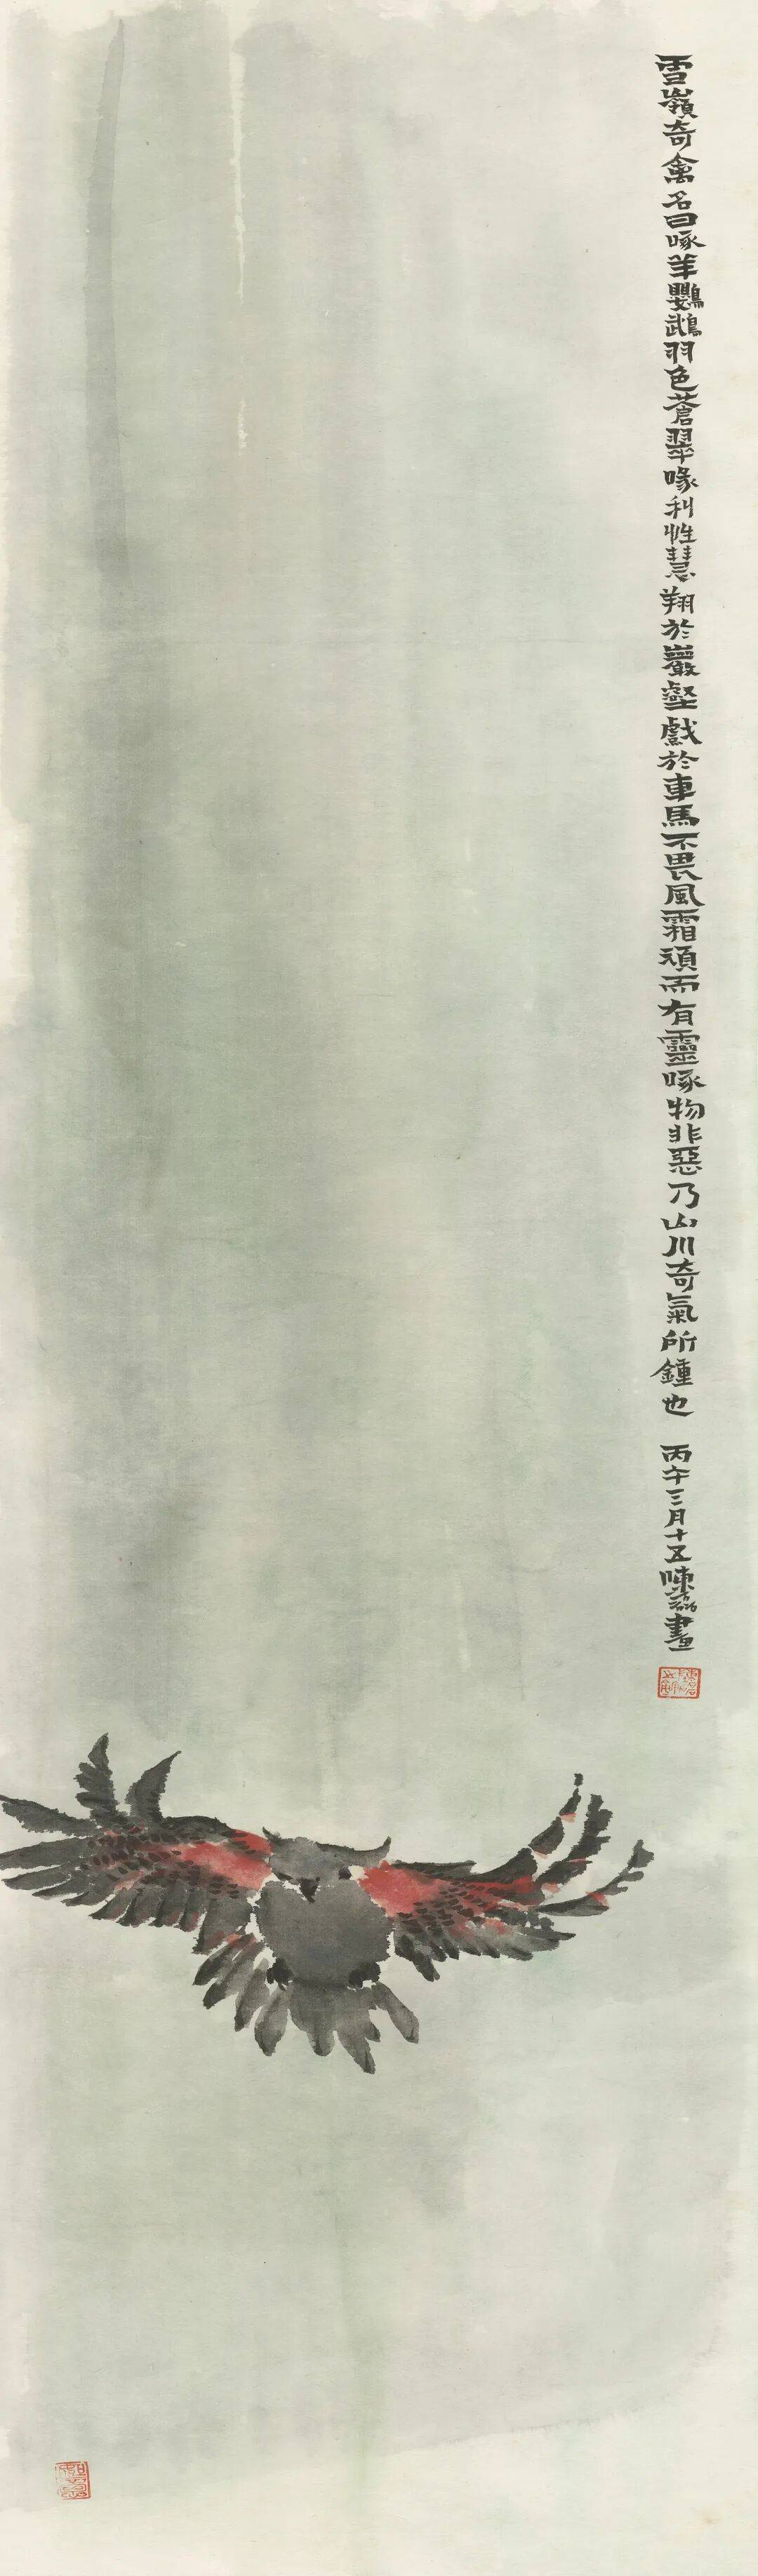 雪嶺奇禽名曰啄羊鸚鵡羽色蒼翠喙利性慧翔於巖壑戲於車馬不畏風霜頑而有靈啄物非惡乃山川奇氣所鍾也 丙午三月十五陳磊畫